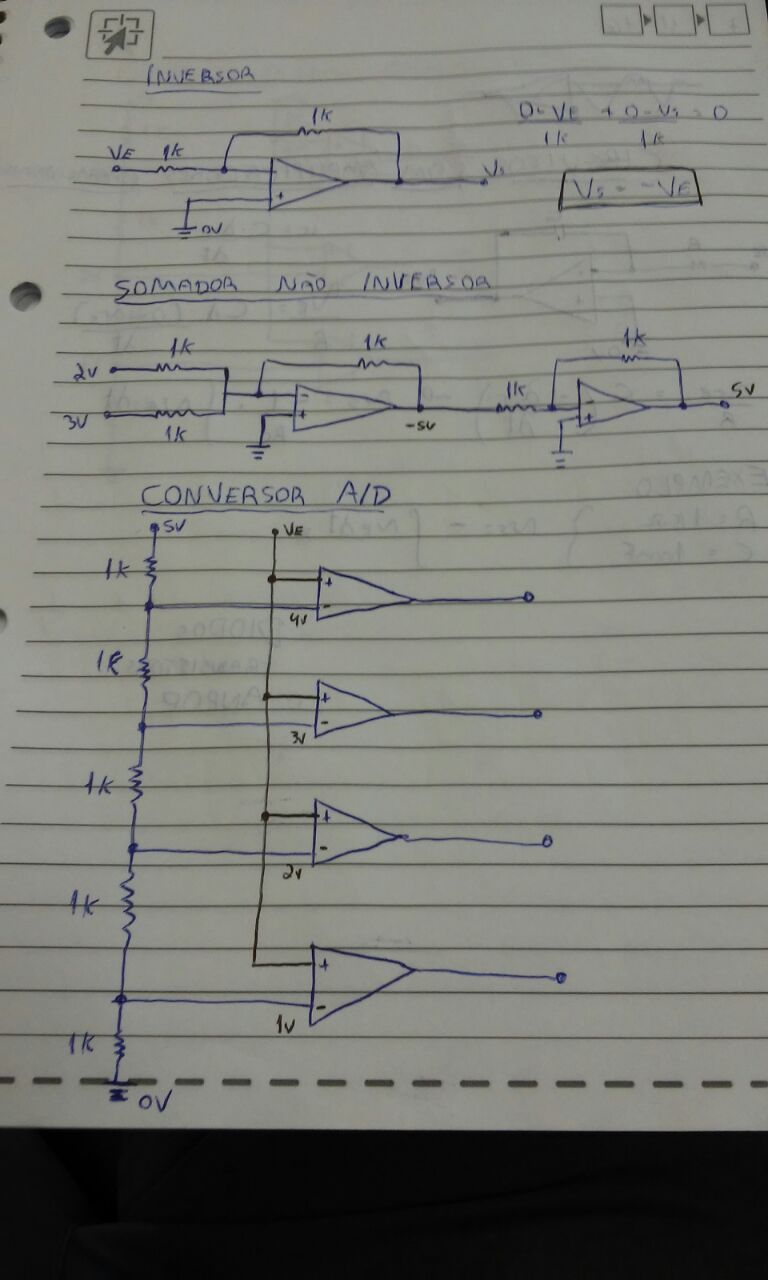 INVERSOR
1K
0-VE + 0-Vs = 0
1K 1K
VE 1K
-
+
Vs
Vs = -VE
0V
SOMADOR NÃO INVERSOR
1K 1K 1K
2V
- 1K - 5V
3V + +
1K -5V
CONVERSOR A/D
5V VE
1K
+
-
4V
1K
+
-
3V
1K
+
-
2V
1K
+
-
1V
1K
0V